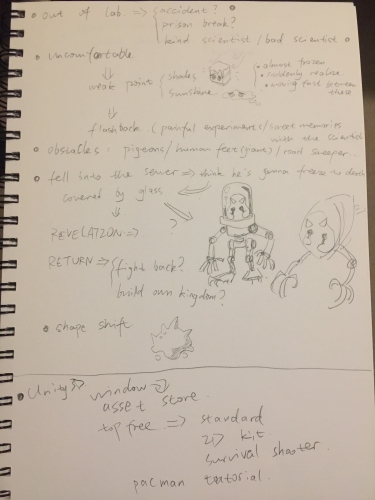 out of lab. => accident?
prison break?
kind scientist / bad scientist
uncomfortable
weak point
shades
sunshine
almost frozen
suddenly realise
moving fast between these
flashback (painful experiments / sweet memories
with the scientist
obstacles: pigeons / human feet (giant) / road sweeper.
fell into the sewer => think he's gonna freeze to death
covered by glass
?
REVELATION =>
RETURN => fight back?
build own kingdom?
shape shift
Unity3D window =>
asset store.
top free => standard
2D kit
survival shooter.
pacman tutorial.